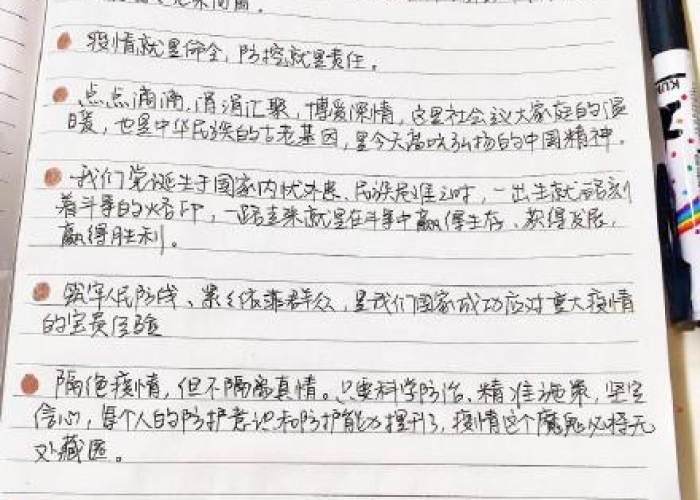 疫情就是命令,防控就是责任。
点点滴滴,涓涓汇聚,博爱深情,这是社会主义大家庭的温
暖,也是中华民族的古老基因,是今天高吭弘扬的中国精神。
我们党诞生于国家内忧外患、民族危难之时,一出生就铭刻
着斗争的烙印,一路走来就是在斗争中赢得生存、获得发展,
赢得胜利。
筑牢人民防线、紧紧依靠群众,是我们国家成功应对重大疫情
的宝贵经验
隔绝疫情,但不隔离真情。只要科学防治、精准施策,坚定
信心,每个人的防护意识和防护能力提升了,疫情这个魔鬼必将无
处藏匿。
KU